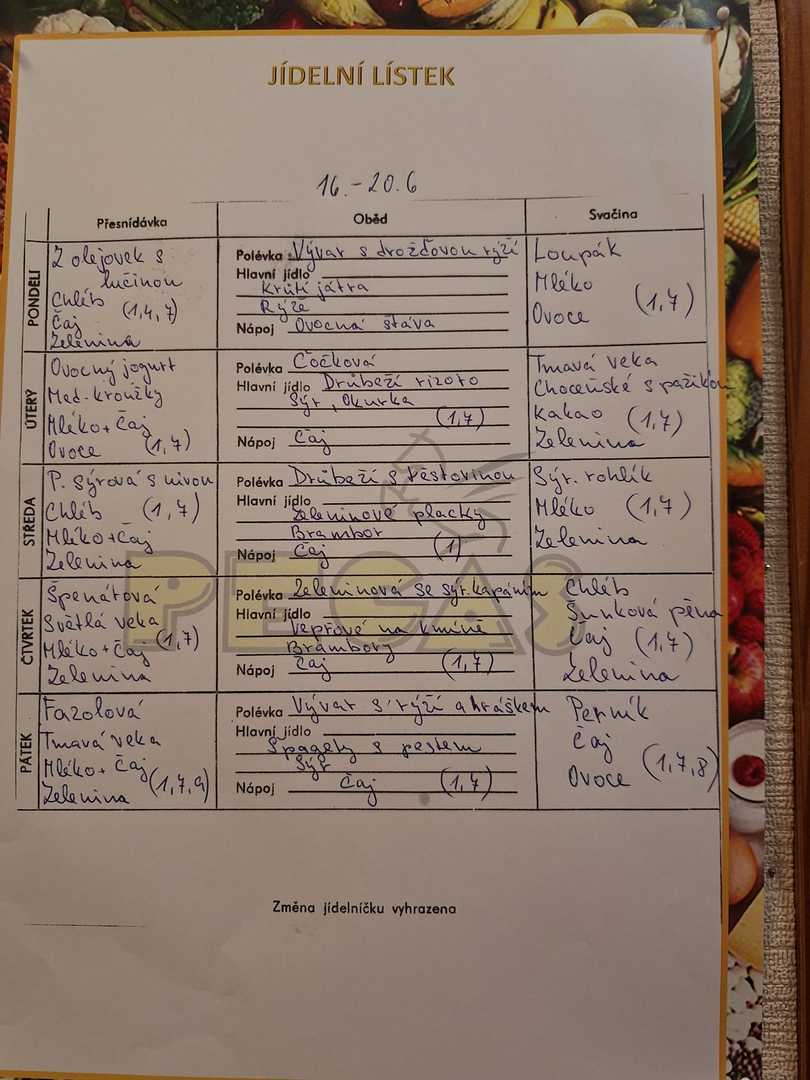 JÍDELNÍ LÍSTEK
16.-20.6
Přesnídávka
Oběd
Svačina
PONDĚLÍ
Z olejovek s
lučinou
Chléb
Čaj (1,4,7)
Zelenina
Polévka Vývar s drožďovou rýží
Hlavní jídlo
Krůtí játra
Rýže
Nápoj Ovocná šťáva
Loupák
Mléko
Ovoce (1,7)
ÚTERÝ
Ovocný jogurt
Med. kroužky
Mléko + Čaj
Ovoce (1,7)
Polévka Čočková
Hlavní jídlo Drůbeží rizoto
Sýr, Okurka
(1,7)
Nápoj Čaj
Tmavá veka
Choceňské s pažitkou
Kakao (1,7)
Zelenina
STŘEDA
P. sýrová s nivou
Chléb (1,7)
Mléko + Čaj
Zelenina
Polévka Drůbeží s těstovinou
Hlavní jídlo
Zeleninové placky
Brambor
Nápoj Čaj (1)
Sýr. rohlík
Mléko (1,7)
Zelenina
PEGAS
ČTVRTEK
Špenátová
Světlá veka
Mléko + Čaj (1,7)
Zelenina
Polévka Zeleninová se sýr. kapáním
Hlavní jídlo
Vepřové na kmíně
Brambory
Nápoj Čaj (1,7)
Chléb
Šunková pěna
Čaj (1,7)
Zelenina
PÁTEK
Fazolová
Tmavá veka
Mléko + Čaj
Zelenina (1,7,9)
Polévka Vývar s rýží a hráškem
Hlavní jídlo
Špagety s pestem
Sýr
Nápoj Čaj (1,7)
Perník
Čaj
Ovoce (1,7,8)
Změna jídelníčku vyhrazena